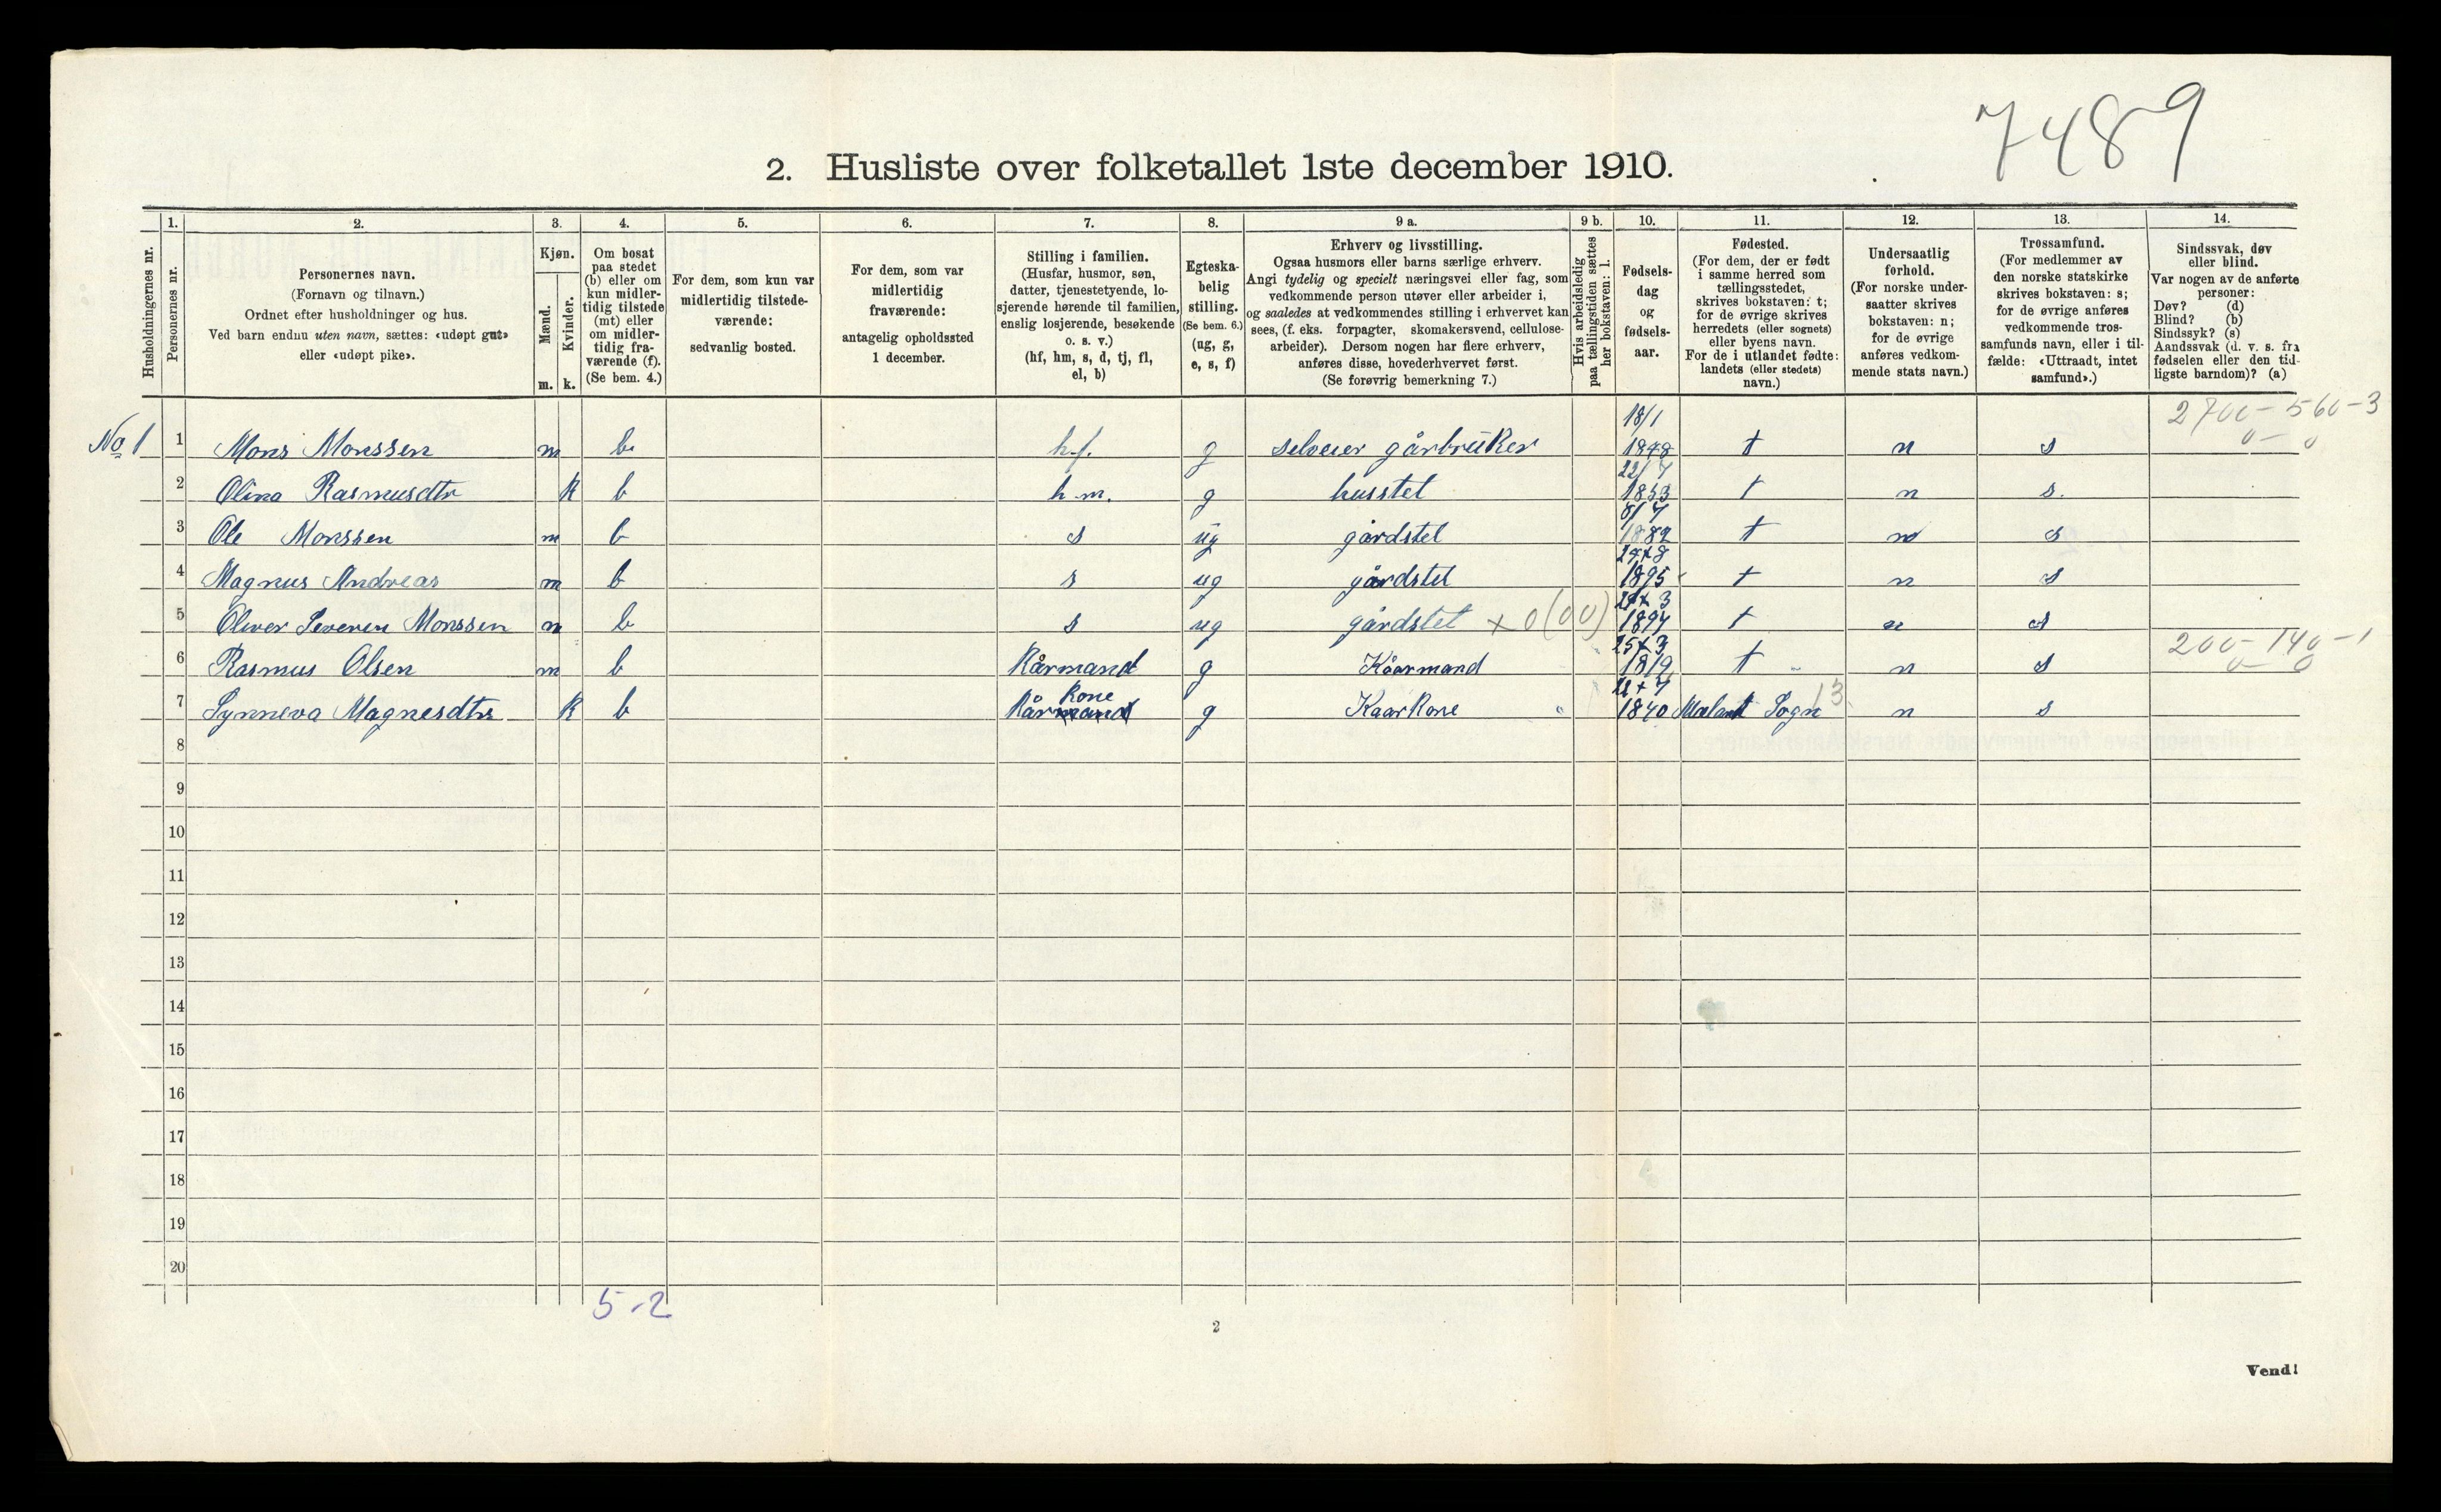 7489
2. Husliste over folketallet 1ste december 1910.
Husholdningernes nr.
1. Personernes nr.
2. Personernes navn.
(Fornavn og tilnavn.)
Ordnet efter husholdninger og hus.
Ved barn endnu uten navn, sættes: «udøpt gut»
eller «udøpt pike».
3. Kjøn.
Mænd. m.
Kvinder. k.
4. Om bosat
paa stedet
(b) eller om
kun midler-
tidig tilstede
(mt) eller
om midler-
tidig fra-
værende (f).
(Se bem. 4.)
5. For dem, som kun var
midlertidig tilstede-
værende:
sedvanlig bosted.
6. For dem, som var
midlertidig
fraværende:
antagelig opholdssted
1 december.
7. Stilling i familien.
(Husfar, husmor, søn,
datter, tjenestetyende, lo-
sjerende hørende til familien,
enslig losjerende, besøkende
o. s. v.)
(hf, hm, s, d, tj, fl,
el, b)
8. Egteska-
belig
stilling.
(Se bem. 6.)
(ug, g,
e, s, f)
9 a. Erhverv og livsstilling.
Ogsaa husmors eller barns særlige erhverv.
Angi tydelig og specielt næringsvei eller fag, som
vedkommende person utøver eller arbeider i,
og saaledes at vedkommendes stilling i erhvervet kan
sees, (f. eks. forpagter, skomakersvend, cellulose-
arbeider). Dersom nogen har flere erhverv,
anføres disse, hovederhvervet først.
(Se forøvrig bemerkning 7.)
9 b. Hvis arbeidsledig
paa tællingstiden sættes
her bokstaven: l.
10. Fødsels-
dag
og
fødsels-
aar.
11. Fødested.
(For dem, der er født
i samme herred som
tællingsstedet,
skrives bokstaven: t;
for de øvrige skrives
herredets (eller sognets)
eller byens navn.
For de i utlandet fødte:
landets (eller stedets)
navn.)
12. Undersaatlig
forhold.
(For norske under-
saatter skrives
bokstaven: n;
for de øvrige
anføres vedkom-
mende stats navn.)
13. Trossamfund.
(For medlemmer av
den norske statskirke
skrives bokstaven: s;
for de øvrige anføres
vedkommende tros-
samfunds navn, eller i til-
fælde: «Uttraadt, intet
samfund».)
14. Sindssvak, døv
eller blind.
Var nogen av de anførte
personer:
Døv? (d)
Blind? (b)
Sindssyk? (s)
Aandssvak (d. v. s. fra
fødselen eller den tid-
ligste barndom)? (a)
No 1 1 Mons Monssen m b. h.f. g selveier gårbrüker 18/1 1848 t n s 2700-560-3
0-0
2 Olina Rasmusdtr k b h.m. g husstel 22/7 1853 t n s.
3 Ole Monssen m b s ug gårdstel 8/7 1882 t n s
4 Magnus Andreas m b s ug gårdstel 1895 t n s
5 Oliver Severen Monssen m b s ug gårdstel x 0 (00) 1897 t n s
6 Rasmus Olsen m b Kårmand g Kåarmand 25x3 1819 t n s 200-140-1
0-0
7 Synneva Magnesdtr k b Kårmand Kone g Kaarkone 1840 Sogn 13 n s
8
9
10
11
12
13
14
15
16
17
18
19
20
5-2
2
Vend!